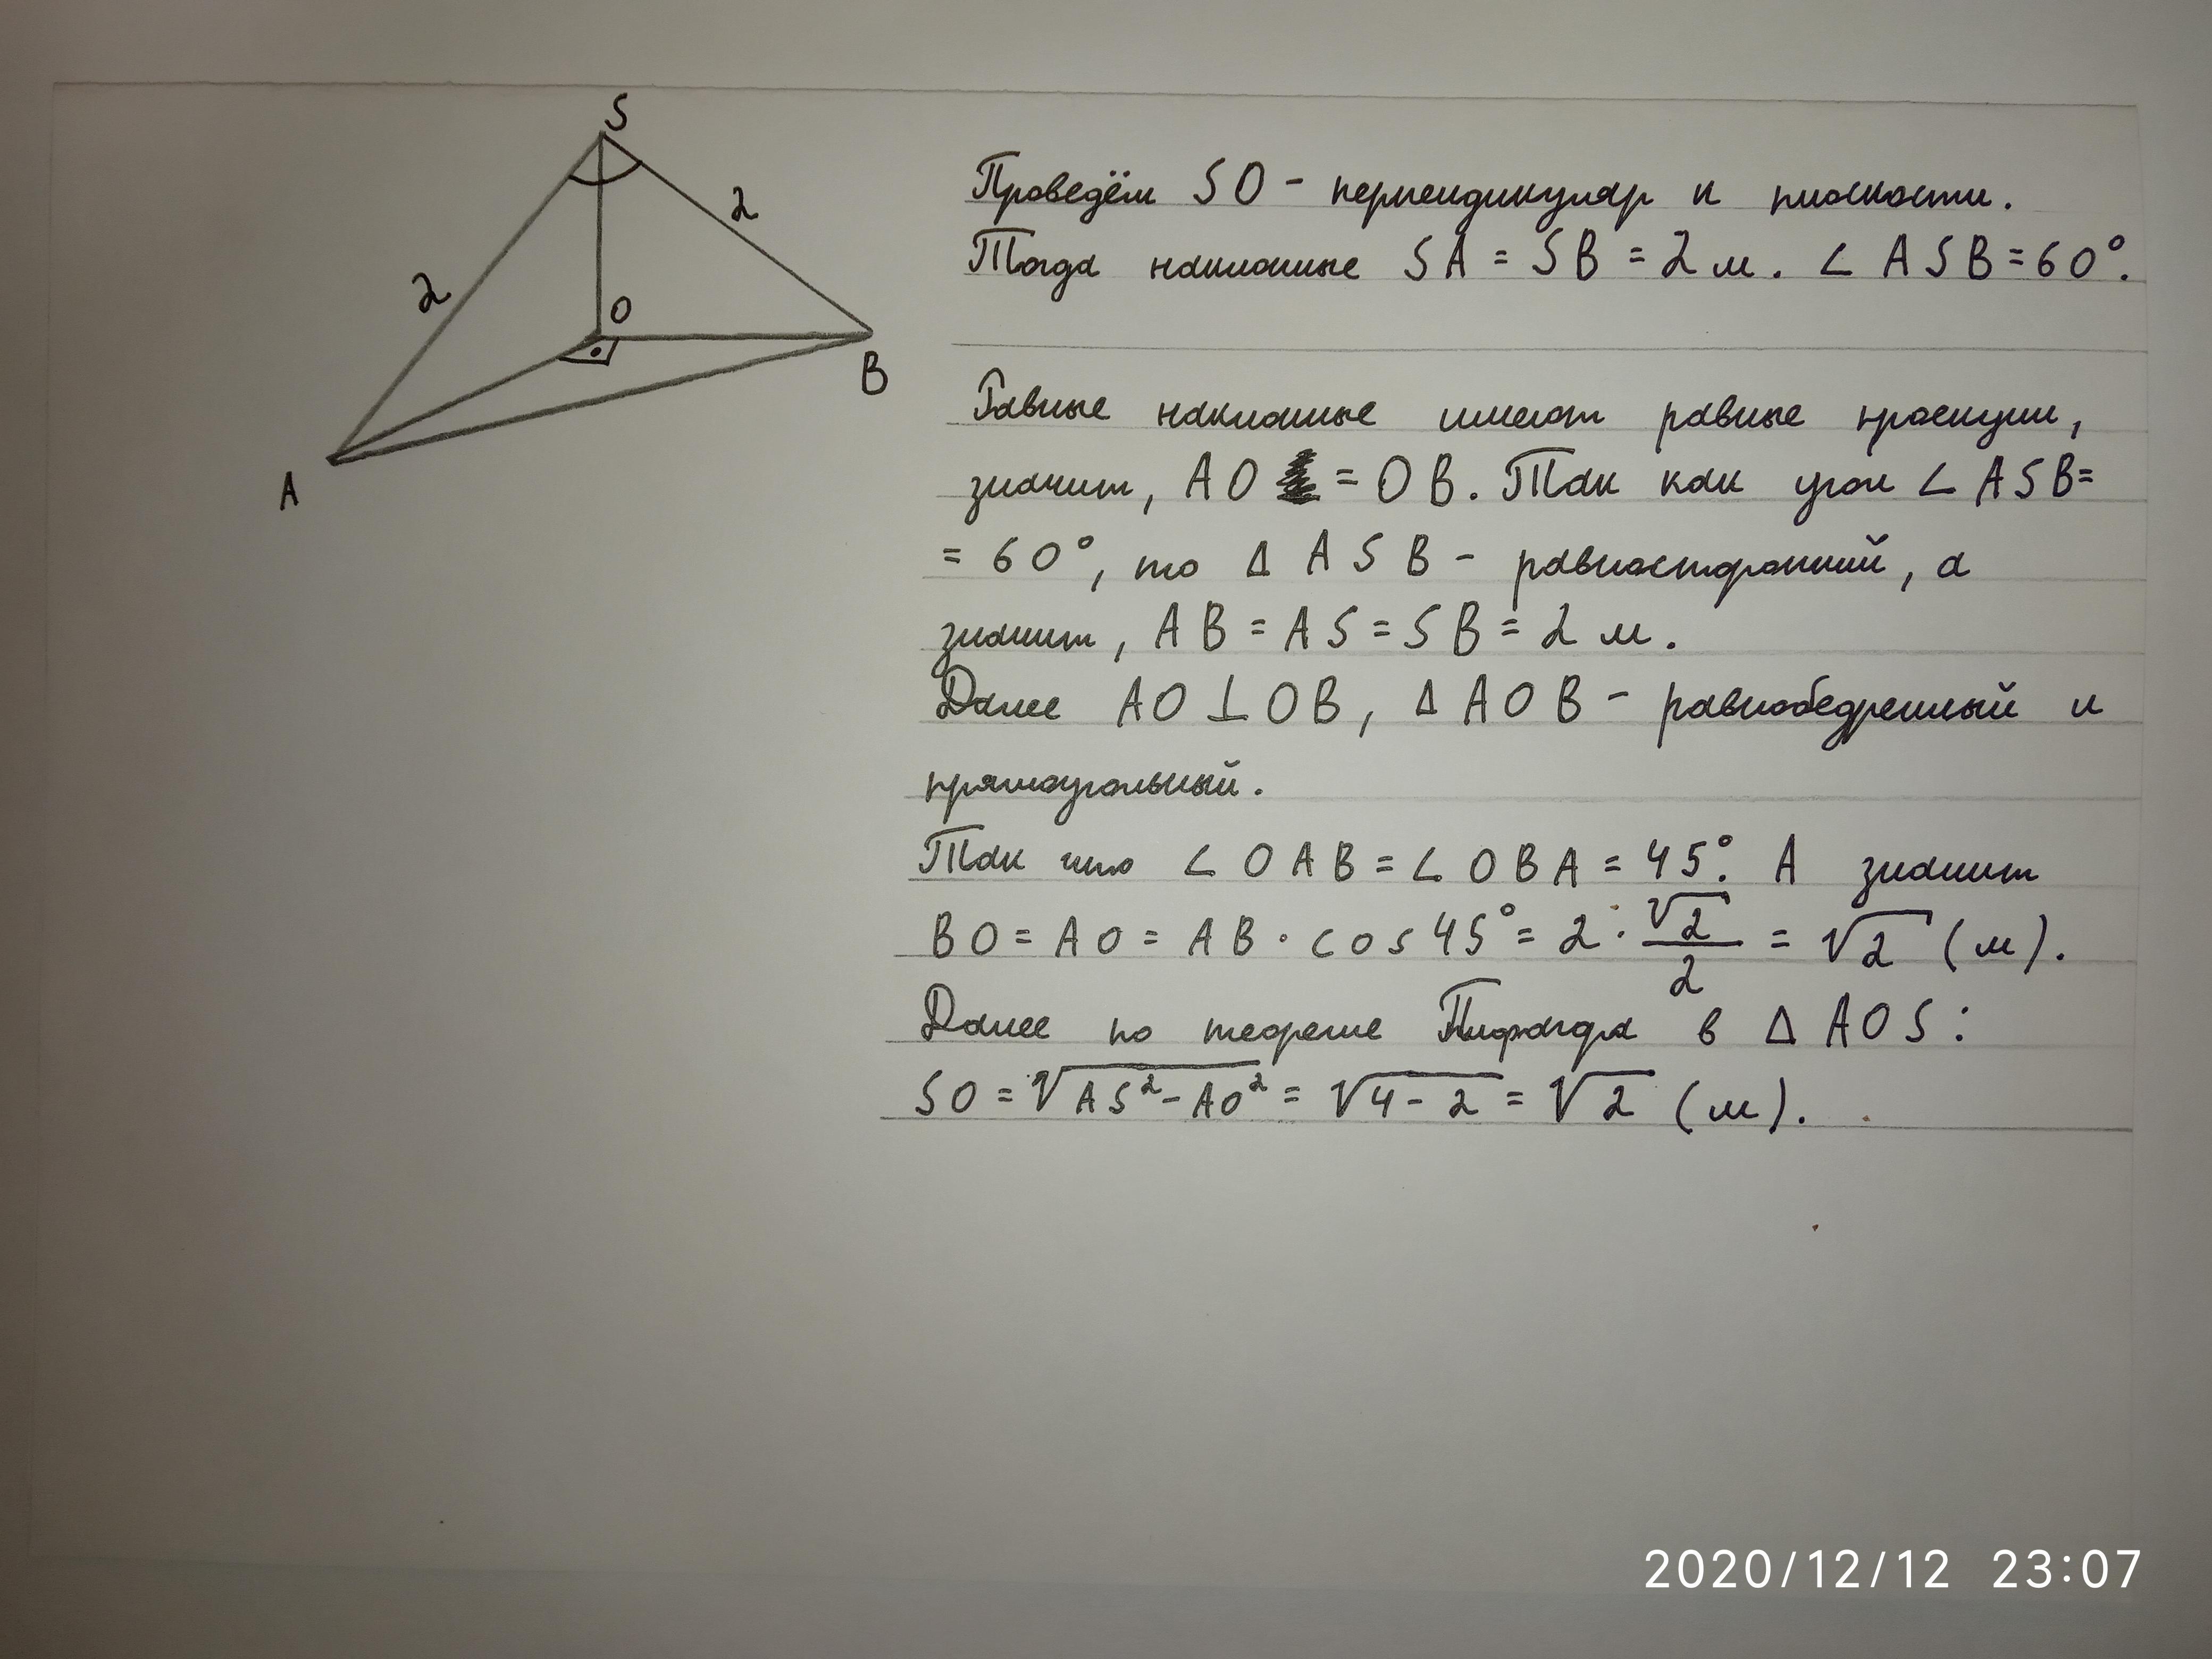 S
2
2
O
B
A
Проведём SO - перпендикуляр к плоскости.
Тогда наклонные SA = SB = 2 м. ∠ ASB = 60°.
Равные наклонные имеют равные проекции,
значит, AO = OB. Так как угол ∠ ASB =
= 60°, то Δ ASB - равносторонний, а
значит, AB = AS = SB = 2 м.
Далее AO ⊥ OB, Δ AOB - равнобедренный и
прямоугольный.
Так что ∠ OAB = ∠ OBA = 45°. А значит
BO = AO = AB · cos 45° = 2 · √2/2 = √2 (м).
Далее по теореме Пифагора в Δ AOS:
SO = √(AS² - AO²) = √(4 - 2) = √2 (м).
2020/12/12 23:07